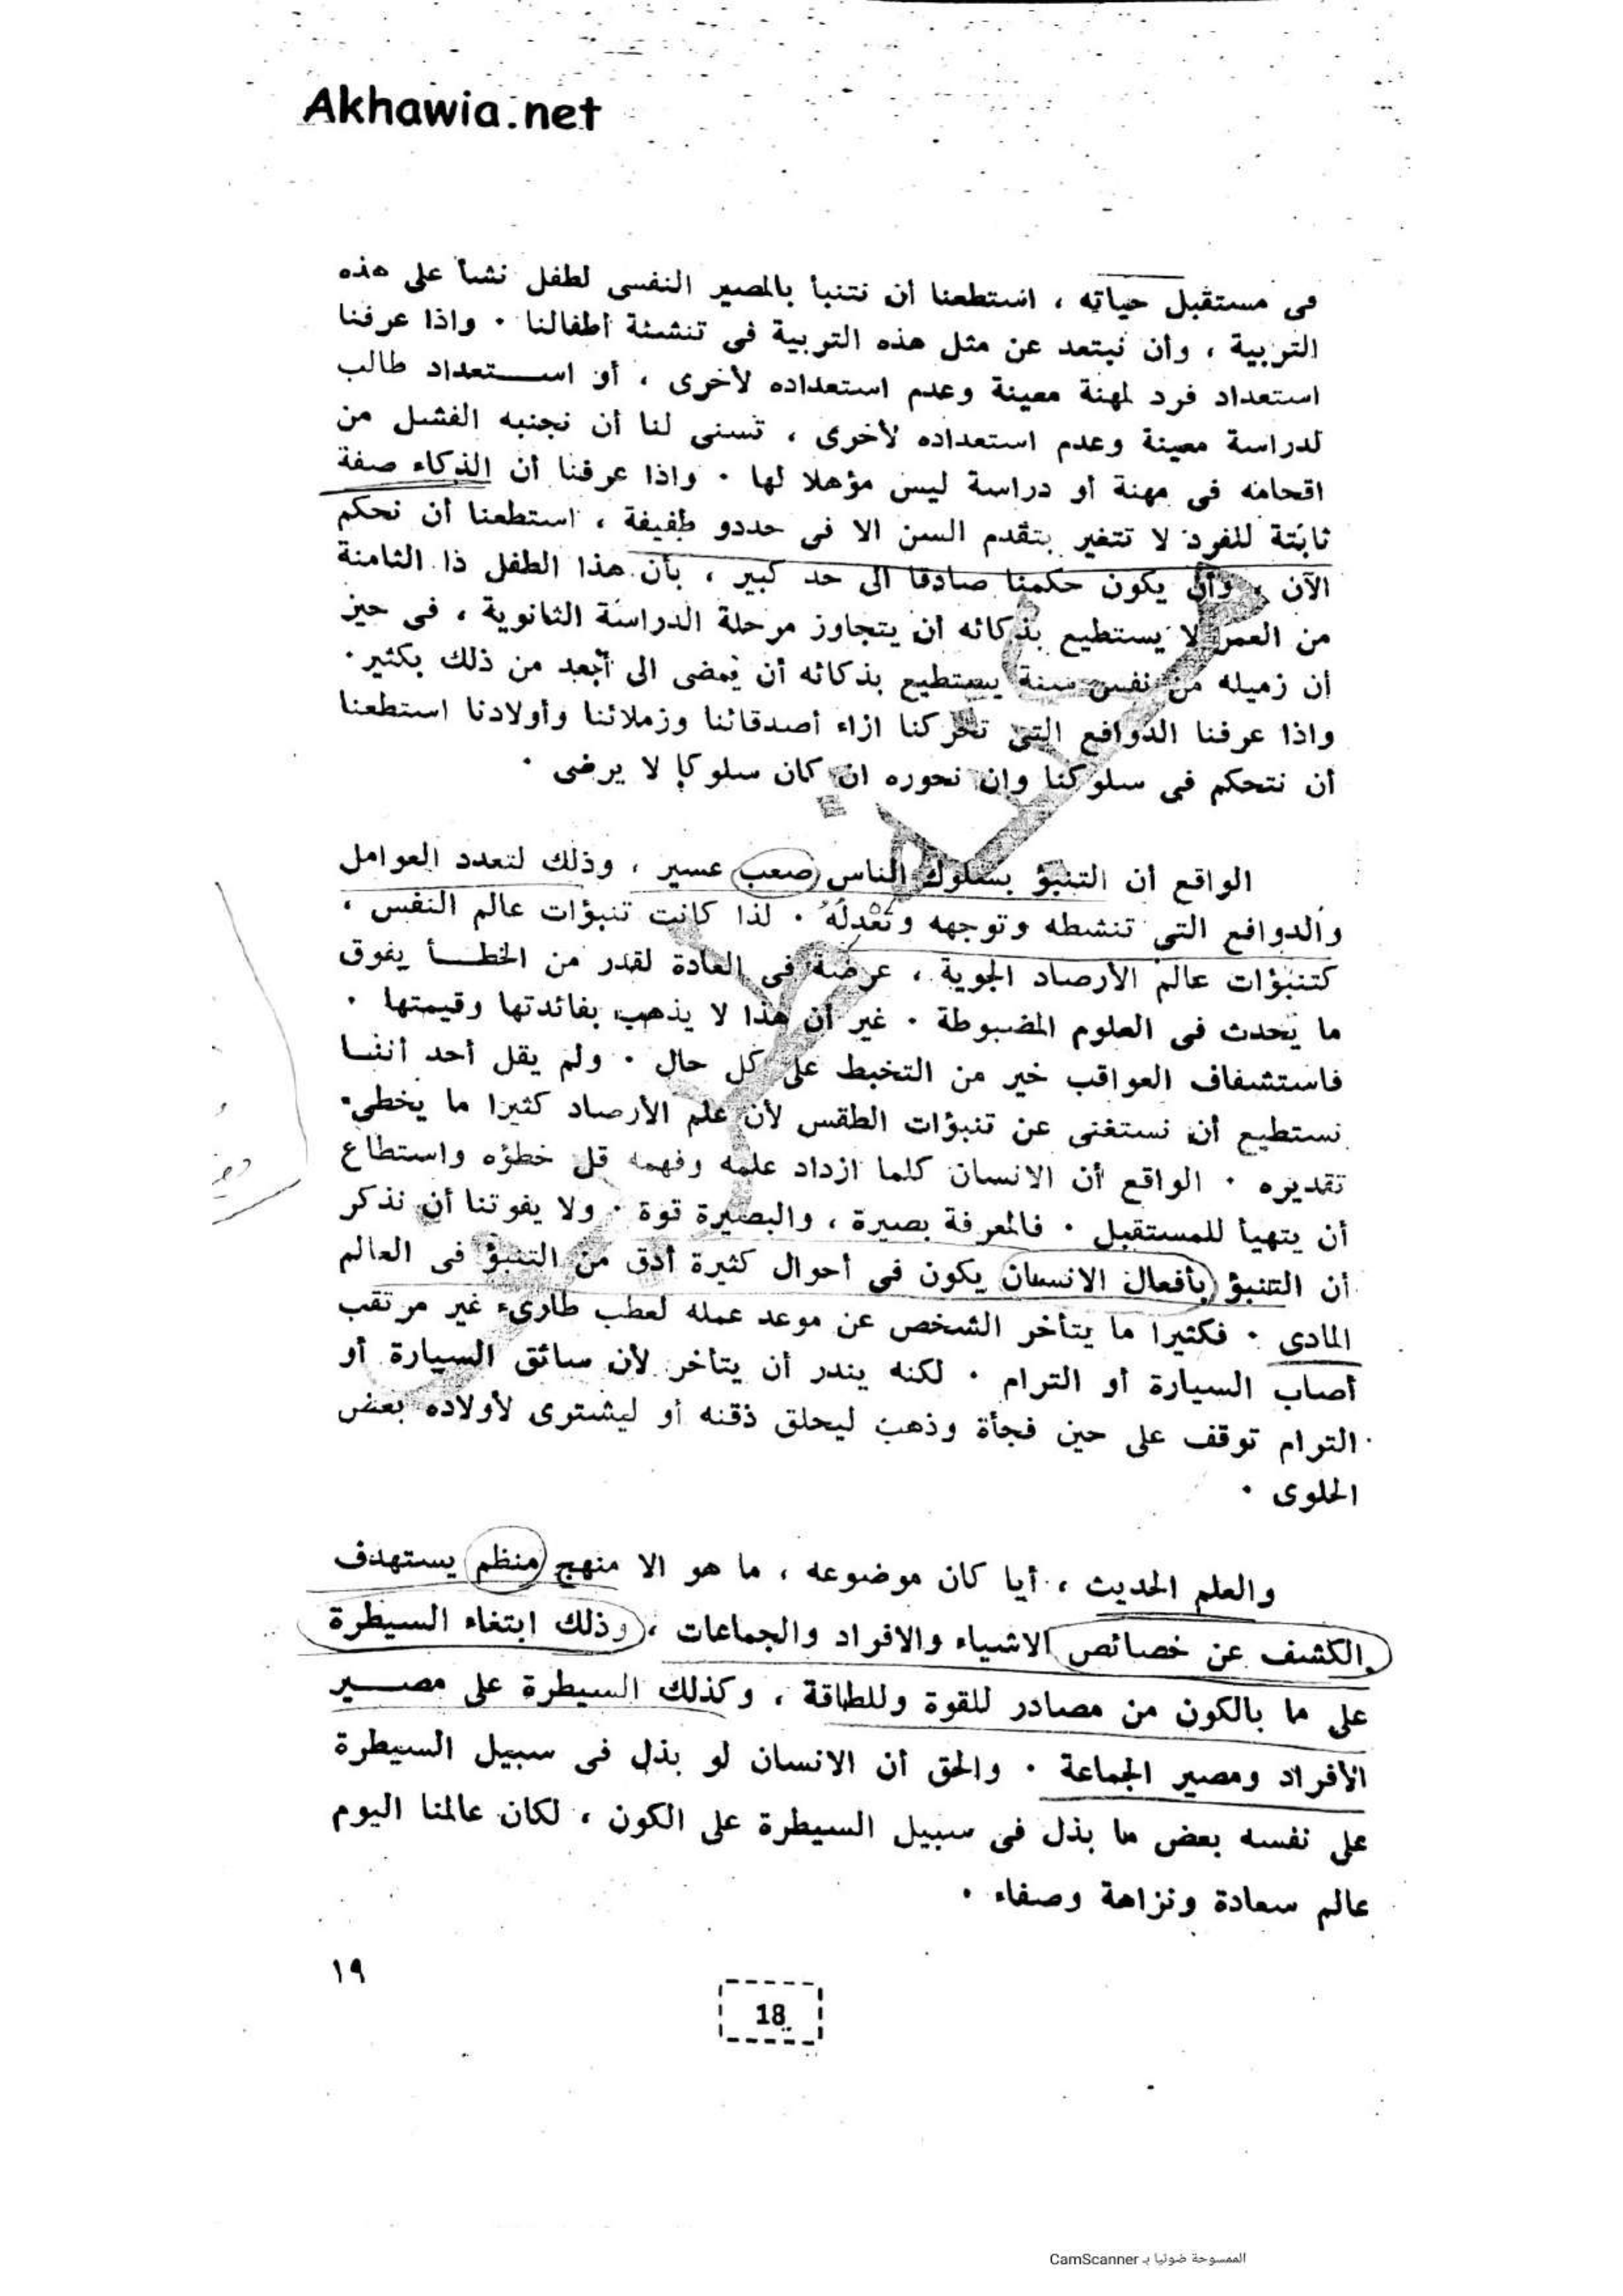 Akhawia.net
فى مستقبل حياته ، استطعنا أن نتنبأ بالمصير النفسى لطفل نشأ على هذه
التربية ، وأن نبتعد عن مثل هذه التربية فى تنشئة أطفالنا . واذا عرفنا
استعداد فرد لمهنة معينة وعدم استعداده لأخرى ، أو اســتعداد طالب
لدراسة معينة وعدم استعداده لأخرى ، تسنى لنا أن نجنبه الفشل من
اقحامه فى مهنة أو دراسة ليس مؤهلا لها . واذا عرفنا أن الذكاء صفة
ثابتة للفرد لا تتغير بتقدم السن الا فى حددو طفيفة ، استطعنا أن نحكم
الآن ، وأن يكون حكمنا صادقا الى حد كبير ، بأن هذا الطفل ذا الثامنة
من العمر لا يستطيع بذكائه أن يتجاوز مرحلة الدراسة الثانوية ، فى حين
أن زميله من نفس سنة يستطيع بذكائه أن يمضى الى أبعد من ذلك بكثير .
واذا عرفنا الدوافع التى تحركنا ازاء أصدقائنا وزملائنا وأولادنا استطعنا
أن نتحكم فى سلوكنا وان نحوره ان كان سلوكا لا يرضى .
الواقع أن التنبؤ بسلوك الناس صعب عسير ، وذلك لتعدد العوامل
والدوافع التى تنشطه وتوجهه وتعدله . لذا كانت تنبؤات عالم النفس ،
كتنبؤات عالم الأرصاد الجوية ، عرضة فى العادة لقدر من الخطــأ يفوق
ما يحدث فى العلوم المضبوطة . غير أن هذا لا يذهب بفائدتها وقيمتها .
فاستشفاف العواقب خير من التخبط على كل حال . ولم يقل أحد أننــا
نستطيع أن نستغنى عن تنبؤات الطقس لأن علم الأرصاد كثيرا ما يخطىء
تقديره . الواقع أن الانسان كلما ازداد علمه وفهمه قل خطؤه واستطاع
أن يتهيأ للمستقبل . فالمعرفة بصيرة ، والبصيرة قوة . ولا يفوتنا أن نذكر
أن التنبؤ بأفعال الانسان يكون فى أحوال كثيرة أدق من التنبؤ فى العالم
المادى . فكثيرا ما يتأخر الشخص عن موعد عمله لعطب طارىء غير مرتقب
أصاب السيارة أو الترام . لكنه يندر أن يتأخر لأن سائق السيارة أو
الترام توقف على حين فجأة وذهب ليحلق ذقنه أو ليشترى لأولاده بعض
الحلوى .
والعلم الحديث ، أيا كان موضوعه ، ما هو الا منهج منظم يستهدف
الكشف عن خصائص الاشياء والافراد والجماعات ، وذلك ابتغاء السيطرة
على ما بالكون من مصادر للقوة وللطاقة ، وكذلك السيطرة على مصــير
الأفراد ومصير الجماعة . والحق أن الانسان لو بذل فى سبيل السيطرة
على نفسه بعض ما بذل فى سبيل السيطرة على الكون ، لكان عالمنا اليوم
عالم سعادة ونزاهة وصفاء .
١٩
18
الممسوحة ضوئيا بـ CamScanner